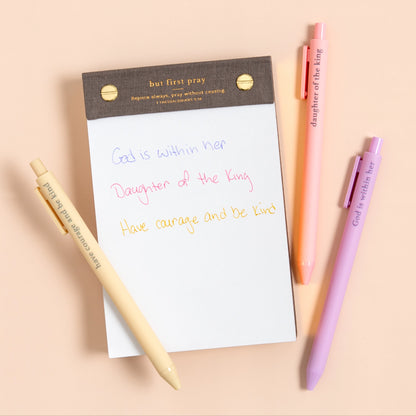 but first pray
Rejoice always, pray without ceasing.
1 THESSALONIANS 5:16
God is within her
Daughter of the King
Have courage and be Kind
have courage and be kind
daughter of the king
God is within her